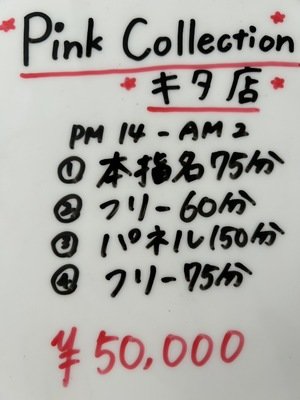 Pink Collection
キタ店
PM 14 - AM 2
① 本指名75分
② フリー60分
③ パネル150分
④ フリー75分
¥50,000